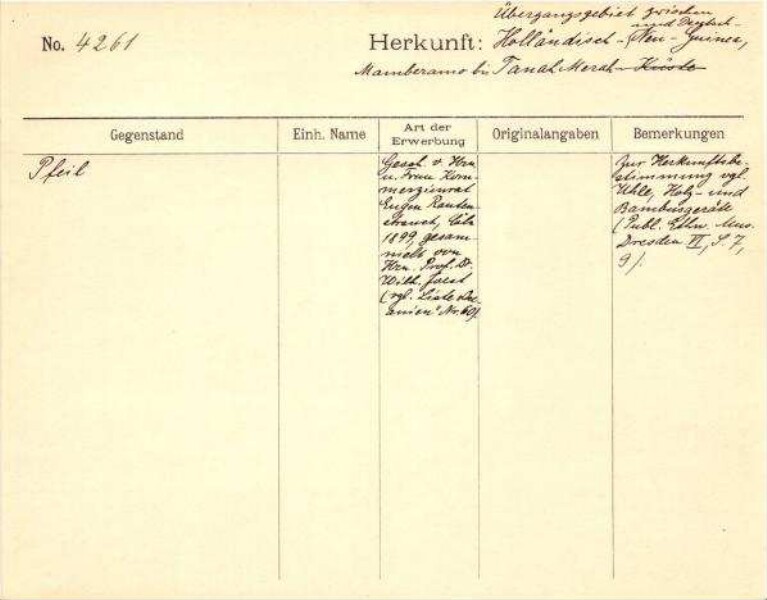 Übergangsgebiet zwischen
und Deutsch-
No. 4261 Herkunft: Holländisch - Neu-Guinea,
Mamberamo bis Tanah Merah-Küste
Gegenstand Einh. Name Art der Erwerbung Originalangaben Bemerkungen
Pfeil
Gesch. v. Hrn.
u. Frau Kom-
merzienrat
Eugen Rauten-
strauch, Cöln
1899, gesam-
melt von
Hrn. Prof. Dr.
Wilh. Joest
(vgl. Liste Oce-
anien" Nr. 60).
Zur Herkunftsbe-
stimmung vgl.
Uhle, Holz- und
Bambusgeräte
(Publ. Ethn. Mus.
Dresden VI, S. 7,
9).